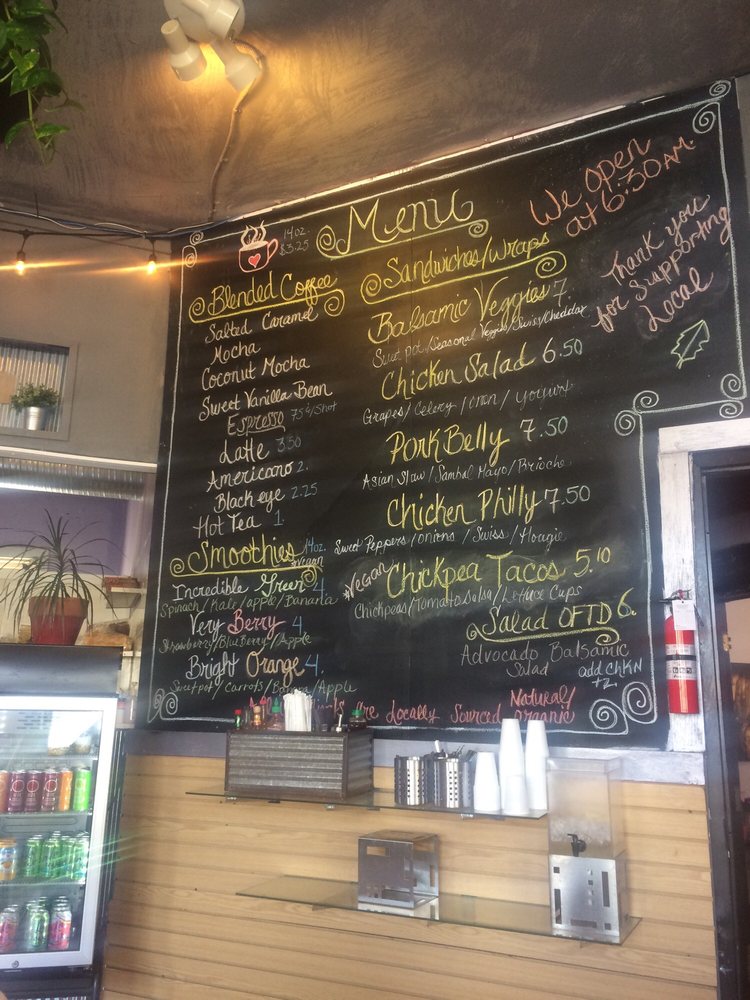 Menu
We open
at 6:30 AM.
Thank you
for supporting
Local
14oz.
$3.25
Blended Coffee
Salted Caramel
Mocha
Coconut Mocha
Sweet Vanilla Bean
Espresso 75¢/Shot
Latte 3.50
Americano 2.
Blackeye 2.25
Hot Tea 1.
Smoothies 14oz.
Vegan
Incredible Green 4
Spinach/Kale/apple/Banana
Very Berry 4
Strawberry/BlueBerry/Apple
Bright Orange 4.
Sweetpot/Carrots/Banana/Apple
Sandwiches/Wraps
Balsamic Veggies 7.
Sweet pot/Seasonal Veggies/Swiss/Cheddar
Chicken Salad 6.50
Grapes/Celery/Onion/Yogurt
Pork Belly 7.50
Asian Slaw/Sambal Mayo/Brioche
Chicken Philly 7.50
Sweet Peppers/Onions/Swiss/Hougie
Vegan Chickpea Tacos 5.10
Chickpeas/Tomato Salsa/Lettuce Cups
Salad OFTD 6.
Advocado Balsamic
Salad add CHKN
+2.
are Locally Sourced Natural/
organic